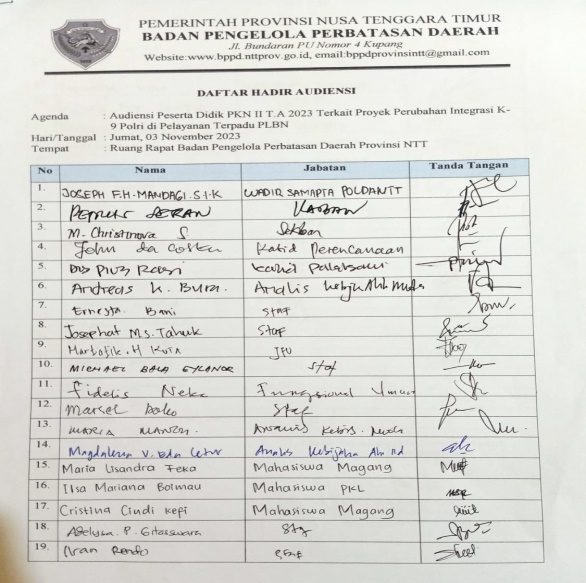 PEMERINTAH PROVINSI NUSA TENGGARA TIMUR
BADAN PENGELOLA PERBATASAN DAERAH
Jl. Bundaran PU Nomor 4 Kupang
Website:www.bppd.nttprov.go.id, email:bppdprovinsintt@gmail.com
DAFTAR HADIR AUDIENSI
Agenda : Audiensi Peserta Didik PKN II T.A 2023 Terkait Proyek Perubahan Integrasi K-
9 Polri di Pelayanan Terpadu PLBN
Hari/Tanggal : Jumat, 03 November 2023
Tempat : Ruang Rapat Badan Pengelola Perbatasan Daerah Provinsi NTT
No Nama Jabatan Tanda Tangan
1. JOSEPH F.H. MANDAGI. S.I.K WADIR SAMAPTA POLDA NTT
2. KABAN
3. M. Christinova S Sekban
4. John da Costa Kabid Perencanaan
5. Drs Pius Kabid
6. Andreas K. Analis
7. Ernesta Bani Staf
8. Josephat Ms. Tahuk Staf
9. H JFU
10. MICHAEL BALA Staf
11. Fidelis Neka Fungsional Umum
12. Marsel Staf
13. MARIA
14. Magdalena V. Analis Kebijakan
15. Maria Lisandra Feka Mahasiswa Magang
16. Ilsa Mariana Bolmau Mahasiswa PKL
17. Cristina Cindi Kefi Mahasiswa Magang
18. P.
19. Ivan Staf